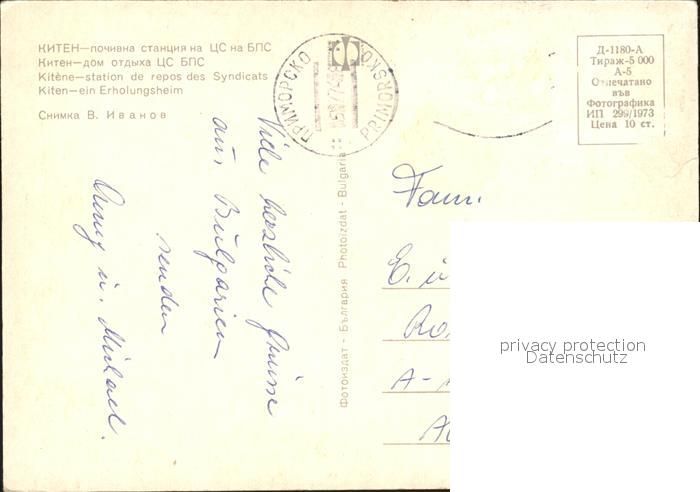 КИТЕН—почивна станция на ЦС на БПС
Китен—дом отдыха ЦС БПС
Kitène—station de repos des Syndicats
Kiten—ein Erholungsheim
Снимка В. Иванов
ПРИМОРСКО
PRIMORSKO
Д-1180-А
Тираж-5 000
А-5
Отпечатано
във
Фотографика
ИП 299/1973
Цена 10 ст.
Фотоиздат - България Photoizdat - Bulgaria
Viele herzliche Grüsse
aus Bulgarien
senden
u. Michael.
Fam.
E. u
A-
privacy protection
Datenschutz